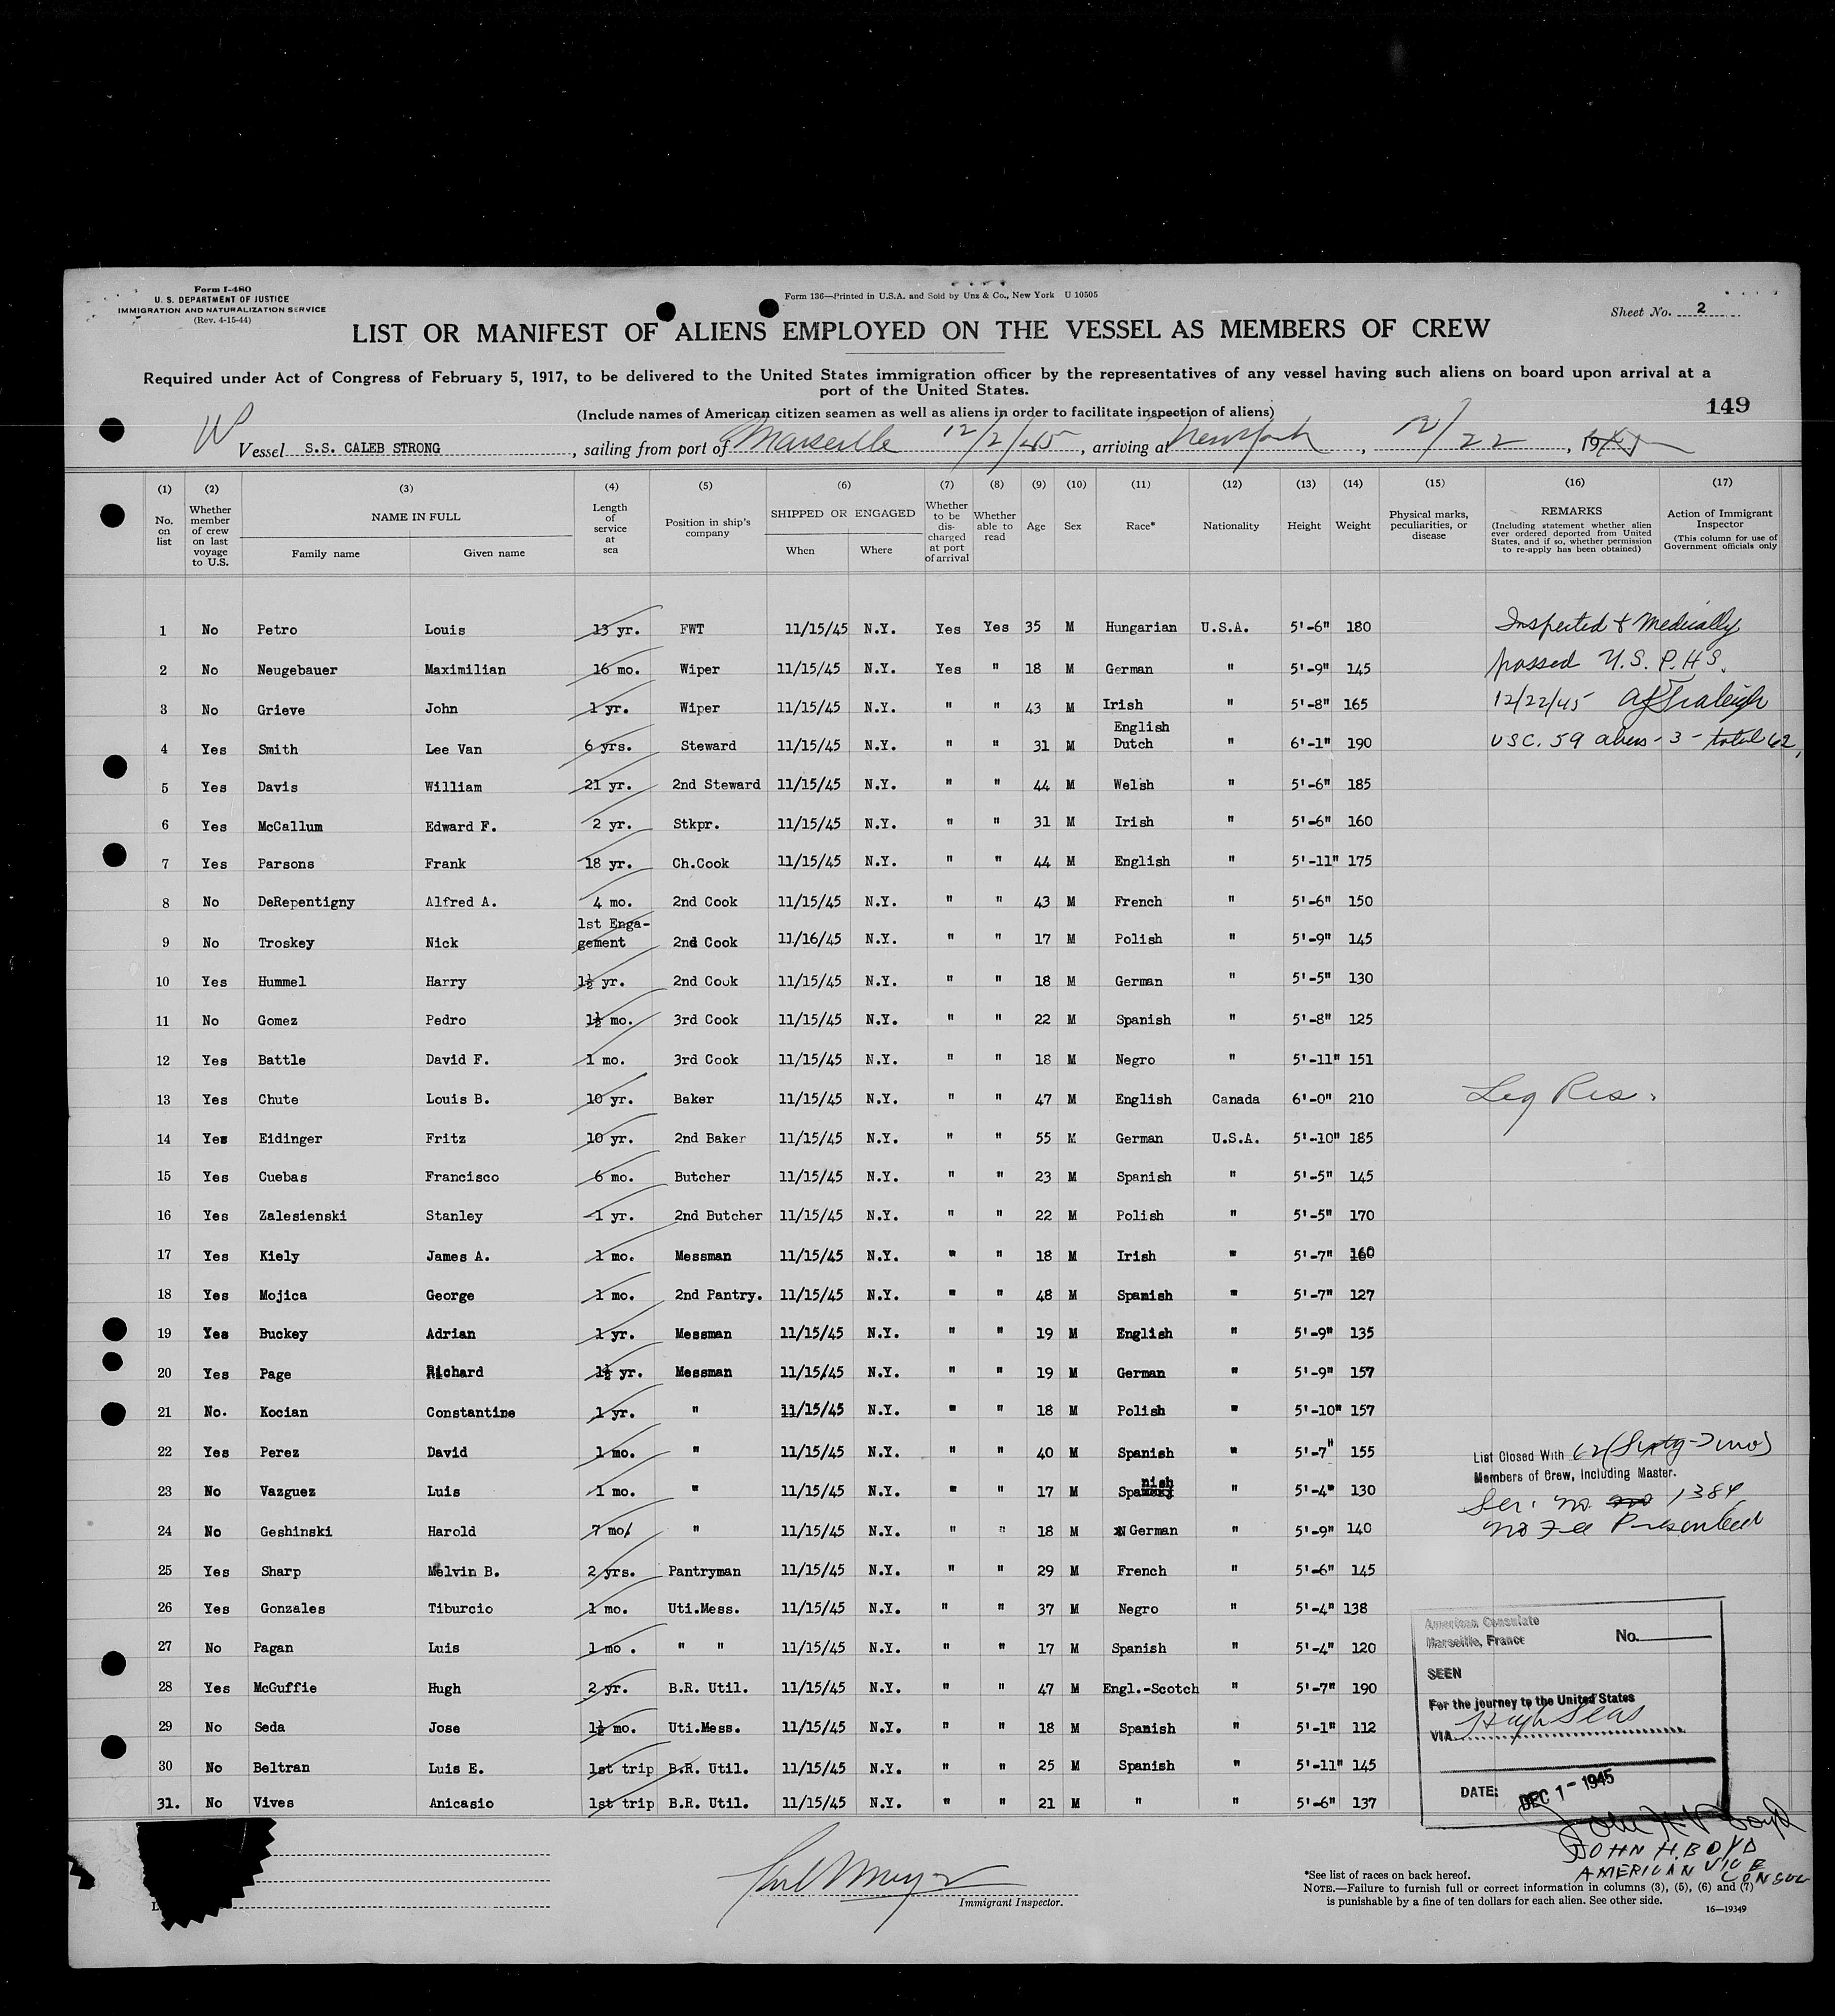 Form I-480
U. S. DEPARTMENT OF JUSTICE
IMMIGRATION AND NATURALIZATION SERVICE
(Rev. 4-15-44)
Form 136—Printed in U.S.A. and Sold by Unz & Co., New York U 10505
Sheet No. 2
LIST OR MANIFEST OF ALIENS EMPLOYED ON THE VESSEL AS MEMBERS OF CREW
Required under Act of Congress of February 5, 1917, to be delivered to the United States immigration officer by the representatives of any vessel having such aliens on board upon arrival at a
port of the United States.
(Include names of American citizen seamen as well as aliens in order to facilitate inspection of aliens)
149
Vessel S.S. CALEB STRONG, sailing from port of Marseille 12/2/45, arriving at New York, 12/22, 1945
(1) (2) (3) (4) (5) (6) (7) (8) (9) (10) (11) (12) (13) (14) (15) (16) (17)
No. on list
Whether member of crew on last voyage to U.S.
NAME IN FULL
Family name
Given name
Length of service at sea
Position in ship's company
SHIPPED OR ENGAGED
When
Where
Whether to be discharged at port of arrival
Whether able to read
Age
Sex
Race*
Nationality
Height
Weight
Physical marks, peculiarities, or disease
REMARKS
(Including statement whether alien ever ordered deported from United States, and if so, whether permission to re-apply has been obtained)
Action of Immigrant Inspector
(This column for use of Government officials only
1 No Petro Louis 13 yr. FWT 11/15/45 N.Y. Yes Yes 35 M Hungarian U.S.A. 5'-6" 180 Inspected & Medically
2 No Neugebauer Maximilian 16 mo. Wiper 11/15/45 N.Y. Yes " 18 M German " 5'-9" 145 passed U.S.P.H.S.
3 No Grieve John 1 yr. Wiper 11/15/45 N.Y. " " 43 M Irish " 5'-8" 165 12/22/45
4 Yes Smith Lee Van 6 yrs. Steward 11/15/45 N.Y. " " 31 M English Dutch " 6'-1" 190 USC. 59 aliens - 3 - total 62
5 Yes Davis William 21 yr. 2nd Steward 11/15/45 N.Y. " " 44 M Welsh " 5'-6" 185
6 Yes McCallum Edward F. 2 yr. Stkpr. 11/15/45 N.Y. " " 31 M Irish " 5'-6" 160
7 Yes Parsons Frank 18 yr. Ch.Cook 11/15/45 N.Y. " " 44 M English " 5'-11" 175
8 No DeRepentigny Alfred A. 4 mo. 2nd Cook 11/15/45 N.Y. " " 43 M French " 5'-6" 150
9 No Troskey Nick 1st Enga-gement 2nd Cook 11/16/45 N.Y. " " 17 M Polish " 5'-9" 145
10 Yes Hummel Harry 1½ yr. 2nd Cook 11/15/45 N.Y. " " 18 M German " 5'-5" 130
11 No Gomez Pedro 1½ mo. 3rd Cook 11/15/45 N.Y. " " 22 M Spanish " 5'-8" 125
12 Yes Battle David F. 1 mo. 3rd Cook 11/15/45 N.Y. " " 18 M Negro " 5'-11" 151
13 Yes Chute Louis B. 10 yr. Baker 11/15/45 N.Y. " " 47 M English Canada 6'-0" 210 Leg Res.
14 Yes Eidinger Fritz 10 yr. 2nd Baker 11/15/45 N.Y. " " 55 M German U.S.A. 5'-10" 185
15 Yes Cuebas Francisco 6 mo. Butcher 11/15/45 N.Y. " " 23 M Spanish " 5'-5" 145
16 Yes Zalesienski Stanley 1 yr. 2nd Butcher 11/15/45 N.Y. " " 22 M Polish " 5'-5" 170
17 Yes Kiely James A. 1 mo. Messman 11/15/45 N.Y. " " 18 M Irish " 5'-7" 160
18 Yes Mojica George 1 mo. 2nd Pantry. 11/15/45 N.Y. " " 48 M Spanish " 5'-7" 127
19 Yes Buckey Adrian 1 yr. Messman 11/15/45 N.Y. " " 19 M English " 5'-9" 135
20 Yes Page Richard 1½ yr. Messman 11/15/45 N.Y. " " 19 M German " 5'-9" 157
21 No. Kocian Constantine 1 yr. " 11/15/45 N.Y. " " 18 M Polish " 5'-10" 157
22 Yes Perez David 1 mo. " 11/15/45 N.Y. " " 40 M Spanish " 5'-7" 155
List Closed With 62 (Sixty-Two)
Members of Crew, Including Master.
23 No Vazguez Luis 1 mo. " 11/15/45 N.Y. " " 17 M Spanish " 5'-4" 130
Ser. no. 1384
24 No Geshinski Harold 7 mo. " 11/15/45 N.Y. " " 18 M German " 5'-9" 140
No Fee Presented
25 Yes Sharp Melvin B. 2 yrs. Pantryman 11/15/45 N.Y. " " 29 M French " 5'-6" 145
26 Yes Gonzales Tiburcio 1 mo. Uti.Mess. 11/15/45 N.Y. " " 37 M Negro " 5'-4" 138
27 No Pagan Luis 1 mo. " " 11/15/45 N.Y. " " 17 M Spanish " 5'-4" 120
28 Yes McGuffie Hugh 2 yr. B.R. Util. 11/15/45 N.Y. " " 47 M Engl.-Scotch " 5'-7" 190
29 No Seda Jose 1½ mo. Uti.Mess. 11/15/45 N.Y. " " 18 M Spanish " 5'-1" 112
30 No Beltran Luis E. 1st trip B.R. Util. 11/15/45 N.Y. " " 25 M Spanish " 5'-11" 145
31. No Vives Anicasio 1st trip B.R. Util. 11/15/45 N.Y. " " 21 M " " 5'-6" 137
American Consulate
Marseille, France
No.
SEEN
For the journey to the United States
VIA High Seas
DATE: DEC 1 - 1945
John H. Boyd
JOHN H. BOYD
AMERICAN VICE CONSUL
Immigrant Inspector.
*See list of races on back hereof.
NOTE.—Failure to furnish full or correct information in columns (3), (5), (6) and (7)
is punishable by a fine of ten dollars for each alien. See other side.
16—19349